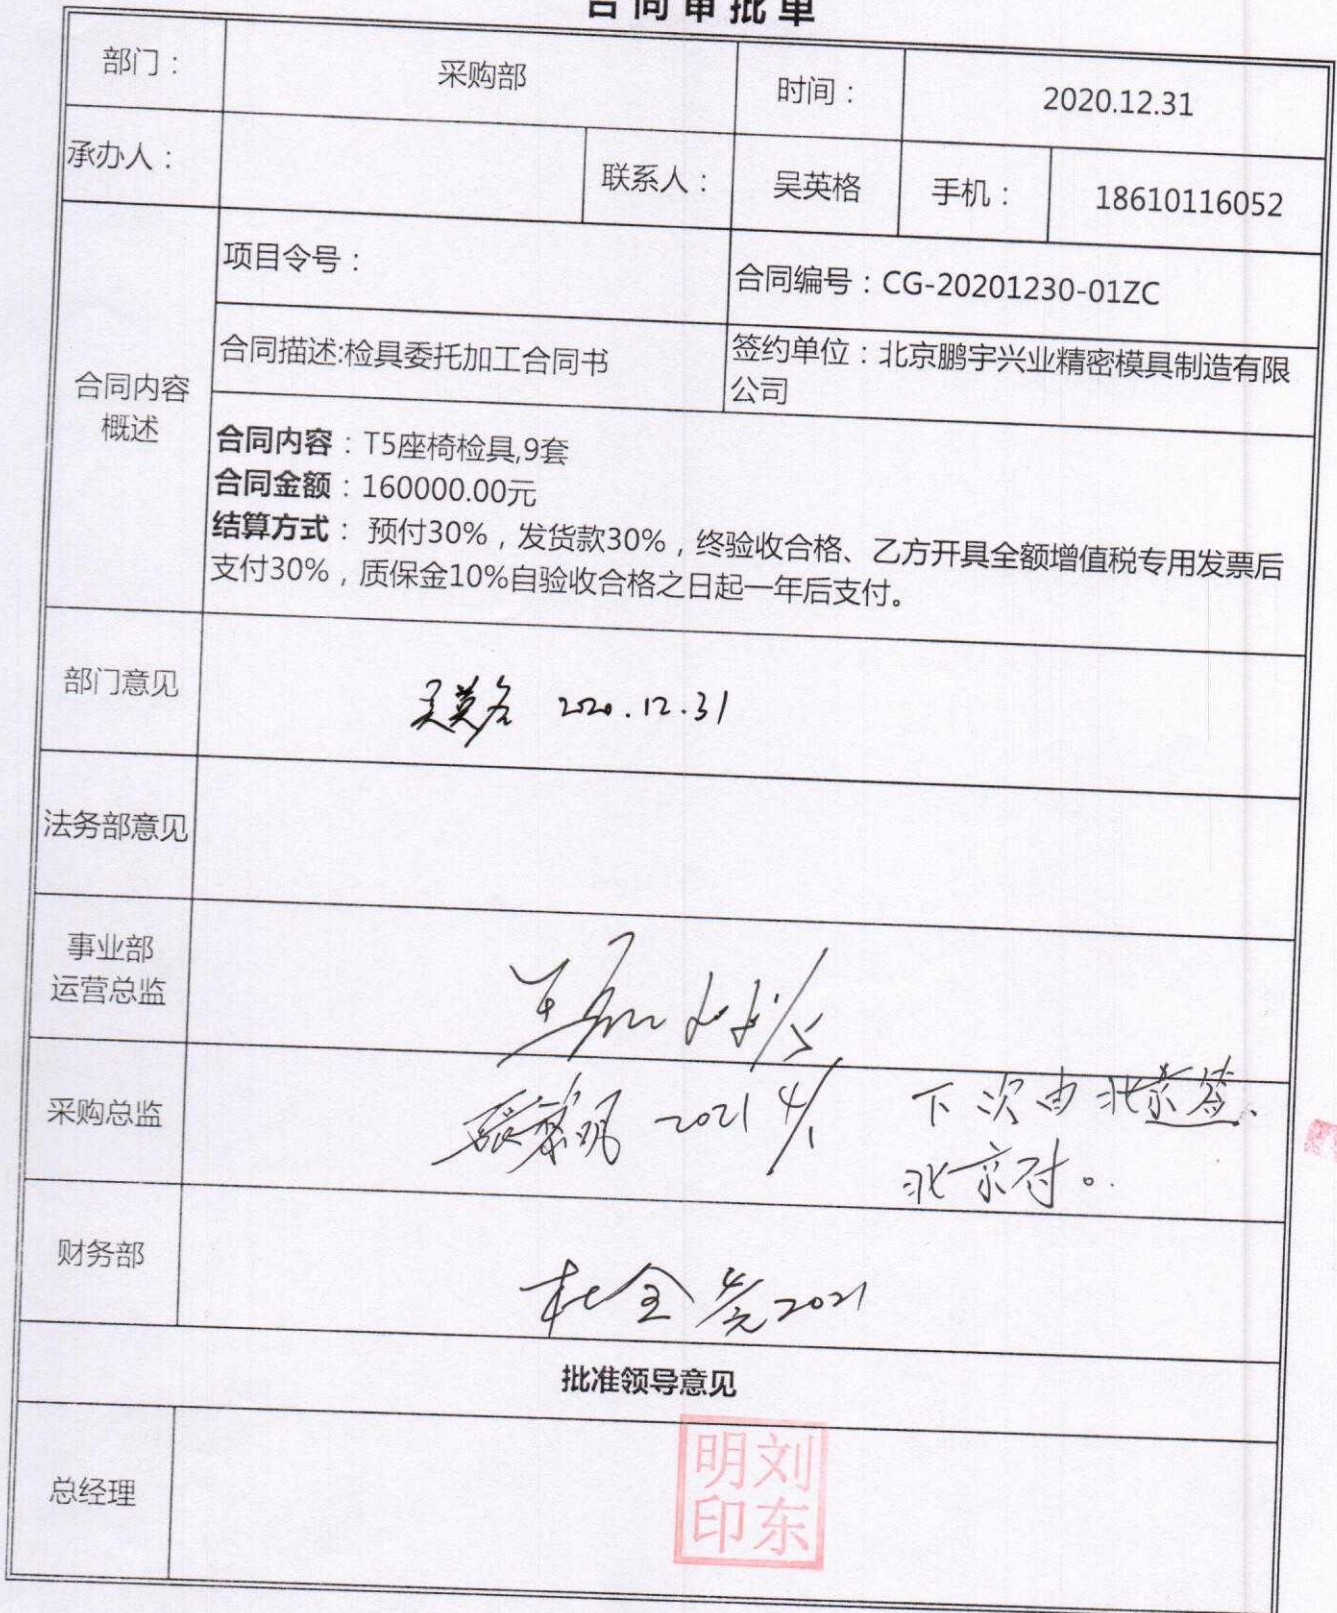 合同审批单
部门：
采购部
时间：
2020.12.31
承办人：
联系人：
吴英格
手机：
18610116052
合同内容
概述
项目令号：
合同编号：CG-20201230-01ZC
合同描述:检具委托加工合同书
签约单位：北京鹏宇兴业精密模具制造有限
公司
合同内容：T5座椅检具,9套
合同金额：160000.00元
结算方式： 预付30%，发货款30%，终验收合格、乙方开具全额增值税专用发票后
支付30%，质保金10%自验收合格之日起一年后支付。
部门意见
吴英格 2020.12.31
法务部意见
事业部
运营总监
采购总监
2021 4/1
下次由北京签、
北京付。
财务部
2021
批准领导意见
总经理
刘东
明印